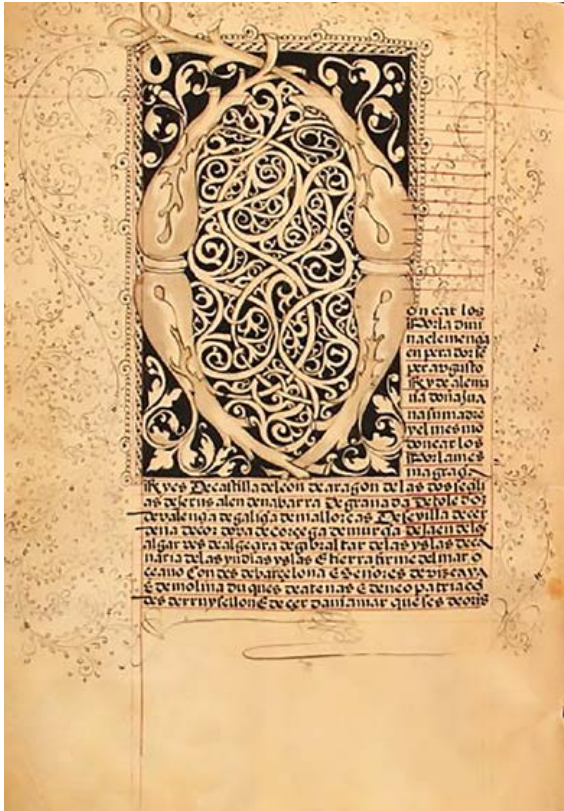 Don carlos
Por la divi
na clemença
enperador se
per augusto
Rey de alema
na doña Jua
na su madre
y el mesmo
don carlos
Por la mes
ma graçia
Reyes De castilla de leon de aragon de las dos seçili
as de jerusalen de nabarra de granada de toledo
de valençia de galiçia de mallorcas De sevilla de cer
dena de cordova de corçega de murçia de jaen de los
algarves de algezira de gibraltar de las yslas de ca
naria de las yndias yslas E tierra firme del mar o
ceano Condes de barcelona E Señores de vizcaya
E de molina duques de atenas E de neopatria co
des de rruysellon E de cerdania marqueses de oris